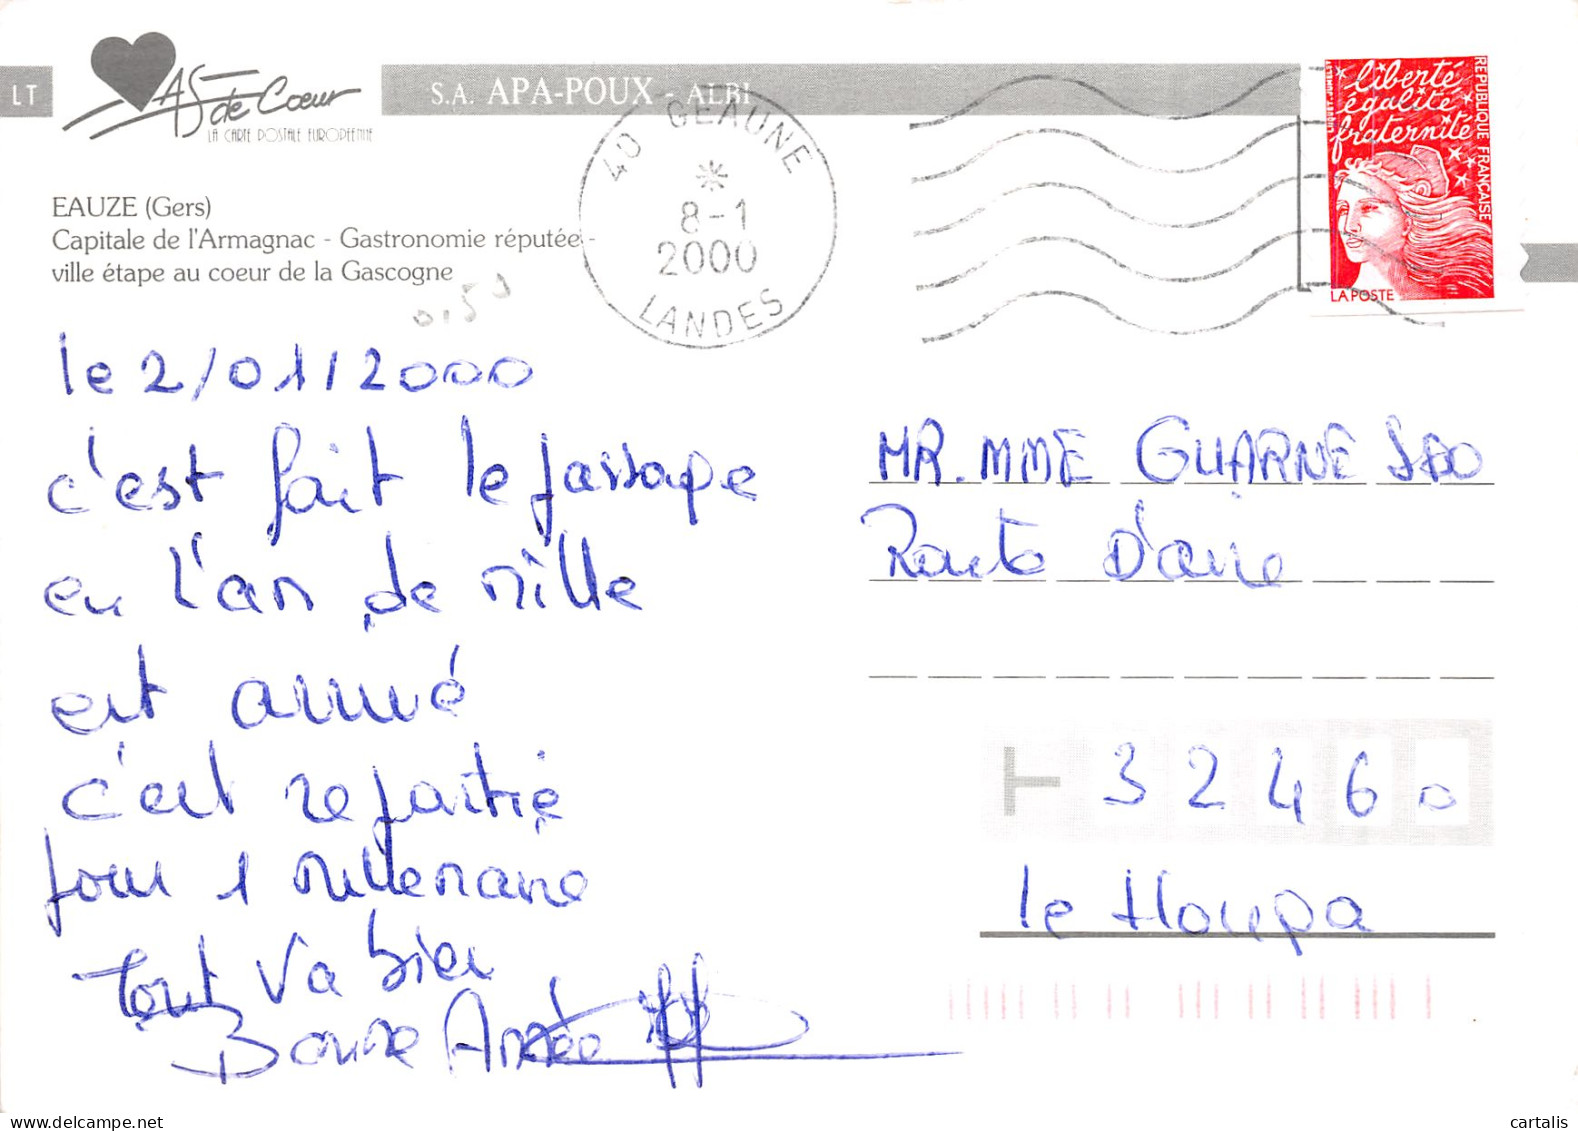 LT
AS de Coeur
LA CARTE POSTALE EUROPÉENNE
S.A. APA-POUX - ALBI
EAUZE (Gers)
Capitale de l'Armagnac - Gastronomie réputée -
ville étape au coeur de la Gascogne
0,50
40 GEAUNE
8-1
2000
LANDES
liberté
égalité
fraternité
REPUBLIQUE FRANÇAISE
LA POSTE
le 2/01/2000
c'est fait le passage
en l'an de mille
est arrivé
c'est repartie
pour 1 millenaire
Tout va bien
Bonne Année
MR. MME GUARNE
Route D'aire
32460
le Houga
cartalis